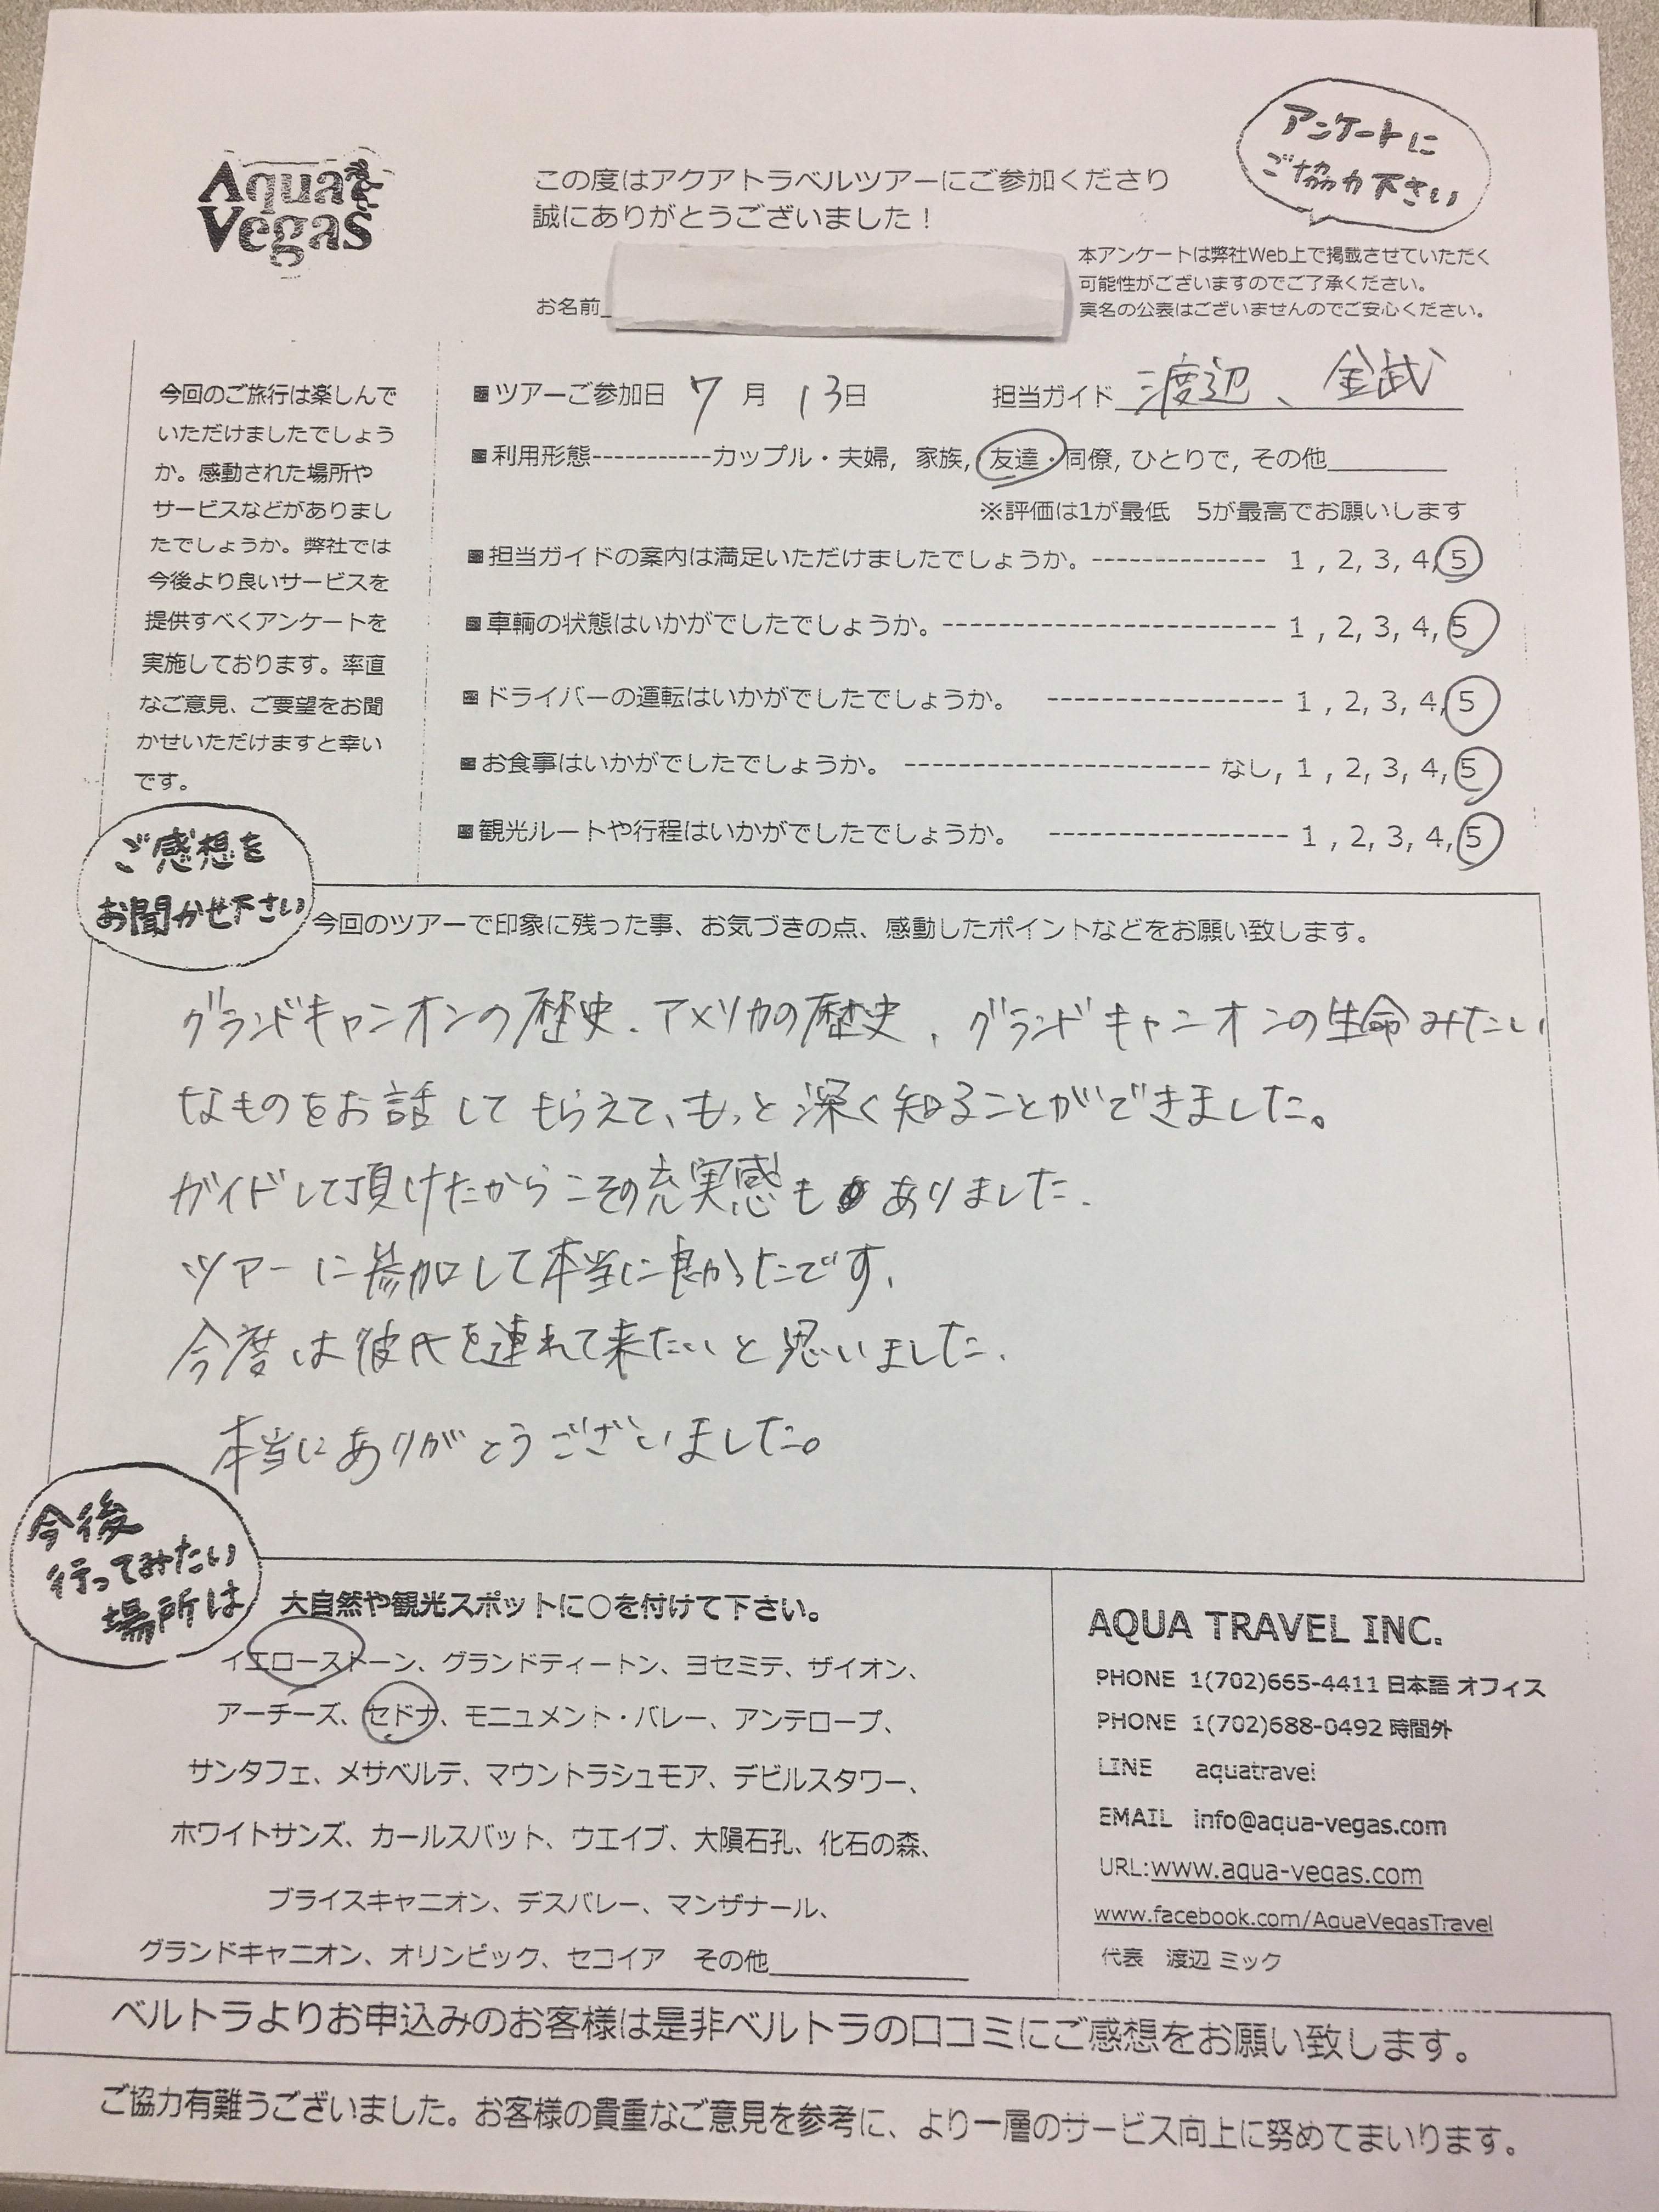 Aqua
Vegas
この度はアクアトラベルツアーにご参加くださり
誠にありがとうございました！
アンケートに
ご協力下さい
お名前
本アンケートは弊社Web上で掲載させていただく
可能性がございますのでご了承ください。
実名の公表はございませんのでご安心ください。
今回のご旅行は楽しんで
いただけましたでしょう
か。感動された場所や
サービスなどがありまし
たでしょうか。弊社では
今後より良いサービスを
提供すべくアンケートを
実施しております。率直
なご意見、ご要望をお聞
かせいただけますと幸い
です。
■ツアーご参加日 7月 13日 担当ガイド 渡辺、金武
■利用形態-----------カップル・夫婦, 家族, 友達・同僚, ひとりで, その他________
※評価は1が最低 5が最高でお願いします
■担当ガイドの案内は満足いただけましたでしょうか。-------------- 1 , 2, 3, 4, 5
■車輌の状態はいかがでしたでしょうか。--------------------------- 1 , 2, 3, 4, 5
■ドライバーの運転はいかがでしたでしょうか。 ------------------- 1 , 2, 3, 4, 5
■お食事はいかがでしたでしょうか。 ------------------------- なし, 1 , 2, 3, 4, 5
■観光ルートや行程はいかがでしたでしょうか。 ------------------- 1 , 2, 3, 4, 5
ご感想を
お聞かせ下さい
今回のツアーで印象に残った事、お気づきの点、感動したポイントなどをお願い致します。
グランドキャニオンの歴史、アメリカの歴史、グランドキャニオンの生命みたい
なものをお話してもらえて、もっと深く知ることができました。
ガイドして頂けたからこその充実感もありました。
ツアーに参加して本当に良かったです。
今度は彼氏を連れて来たいと思いました。
本当にありがとうございました。
今後
行ってみたい
場所は
大自然や観光スポットに○を付けて下さい。
イエローストーン、グランドティートン、ヨセミテ、ザイオン、
アーチーズ、セドナ、モニュメント・バレー、アンテロープ、
サンタフェ、メサベルデ、マウントラシュモア、デビルスタワー、
ホワイトサンズ、カールスバット、ウエイブ、大隕石孔、化石の森、
ブライスキャニオン、デスバレー、マンザナール、
グランドキャニオン、オリンピック、セコイア その他______________
AQUA TRAVEL INC.
PHONE 1(702)665-4411 日本語 オフィス
PHONE 1(702)688-0492 時間外
LINE aquatravel
EMAIL info@aqua-vegas.com
URL:www.aqua-vegas.com
www.facebook.com/AquaVegasTravel
代表 渡辺 ミック
ベルトラよりお申込みのお客様は是非ベルトラの口コミにご感想をお願い致します。
ご協力有難うございました。お客様の貴重なご意見を参考に、より一層のサービス向上に努めてまいります。